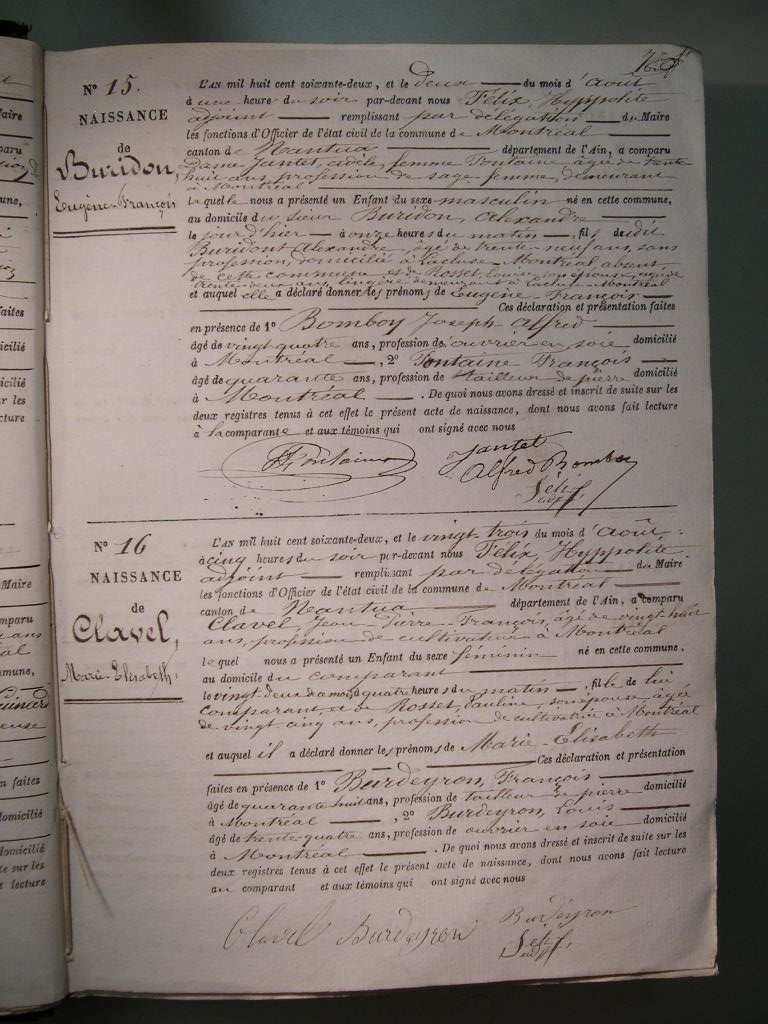 N° 15.
NAISSANCE
de
Buridon,
Eugène-François
L'AN mil huit cent soixante-deux, et le deux du mois d'août
à une heure du soir par-devant nous Félix, Hyppolite
adjoint remplissant par délégation du Maire
les fonctions d'Officier de l'état civil de la commune de Montréal
canton de Nantua département de l'Ain, a comparu
Dame Jantet, femme Fontaine âgée de trente
huit ans, profession de sage femme, demeurant
à Montréal
Laquelle nous a présenté un Enfant du sexe masculin né en cette commune,
au domicile du sieur Buridon, Alexandre
le jour d'hier à onze heures du matin, fils dudit
Buridont Alexandre, âgé de trente-neuf ans, sans
profession, domicilié à Lacluse-Montréal absent
de cette commune et de Rosset, Louise son épouse, âgée de
trente-deux ans, lingère demeurant à Lacluse-Montréal
et auquel elle a déclaré donner les prénoms de Eugène-François
Ces déclaration et présentation faites
en présence de 1° Bomboy Joseph Alfred
âgé de vingt-quatre ans, profession de ouvrier en soie domicilié
à Montréal, 2° Fontaine François
âgé de quarante ans, profession de tailleur de pierre domicilié
à Montréal. De quoi nous avons dressé et inscrit de suite sur les
deux registres tenus à cet effet le présent acte de naissance, dont nous avons fait lecture
à la comparante et aux témoins qui ont signé avec nous
Fontaine Jantet
Alfred Bomboy
Félix
N° 16
NAISSANCE
de
Clavel,
Marie-Elisabeth.
L'AN mil huit cent soixante-deux, et le vingt trois du mois d'Août
à cinq heures du soir par-devant nous Félix, Hyppolite,
adjoint remplissant par délégation du Maire
les fonctions d'Officier de l'état civil de la commune de Montréal
canton de Nantua département de l'Ain, a comparu
Clavel Jean Pierre-François, âgé de vingt huit
ans, profession de cultivateur à Montréal
le quel nous a présenté un Enfant du sexe féminin né en cette commune,
au domicile du comparant
le vingt deux à quatre heures du matin, fille de lui
comparant, et de Rosset, Pauline, son épouse âgée
de vingt cinq ans, profession de cultivatrice à Montréal
et auquel il a déclaré donner les prénoms de Marie-Elisabeth
Ces déclaration et présentation
faites en présence de 1° Burdeyron, François
âgé de quarante huit ans, profession de tailleur de pierre domicilié
à Montréal, 2° Burdeyron, Louis
âgé de trente-quatre ans, profession de ouvrier en soie domicilié
à Montréal. De quoi nous avons dressé et inscrit de suite sur les
deux registres tenus à cet effet le présent acte de naissance, dont nous avons fait lecture
au comparant et aux témoins qui ont signé avec nous
Clavel Burdeyron Burdeyron
Félix